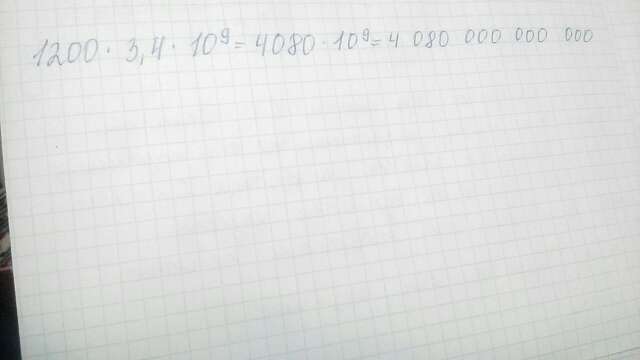 1200 · 3,4 · 10⁹ = 4080 · 10⁹ = 4 080 000 000 000